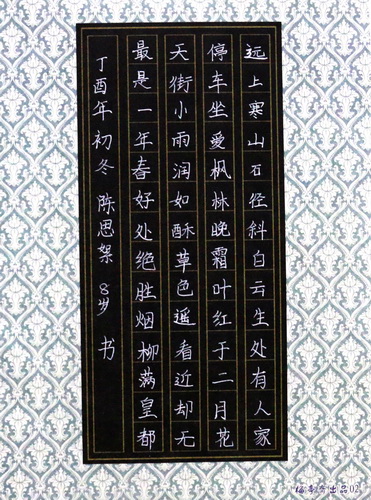 远上寒山石径斜白云生处有人家
停车坐爱枫林晚霜叶红于二月花
天街小雨润如酥草色遥看近却无
最是一年春好处绝胜烟柳满皇都
丁酉年初冬 陈思絮 8岁 书
出品02